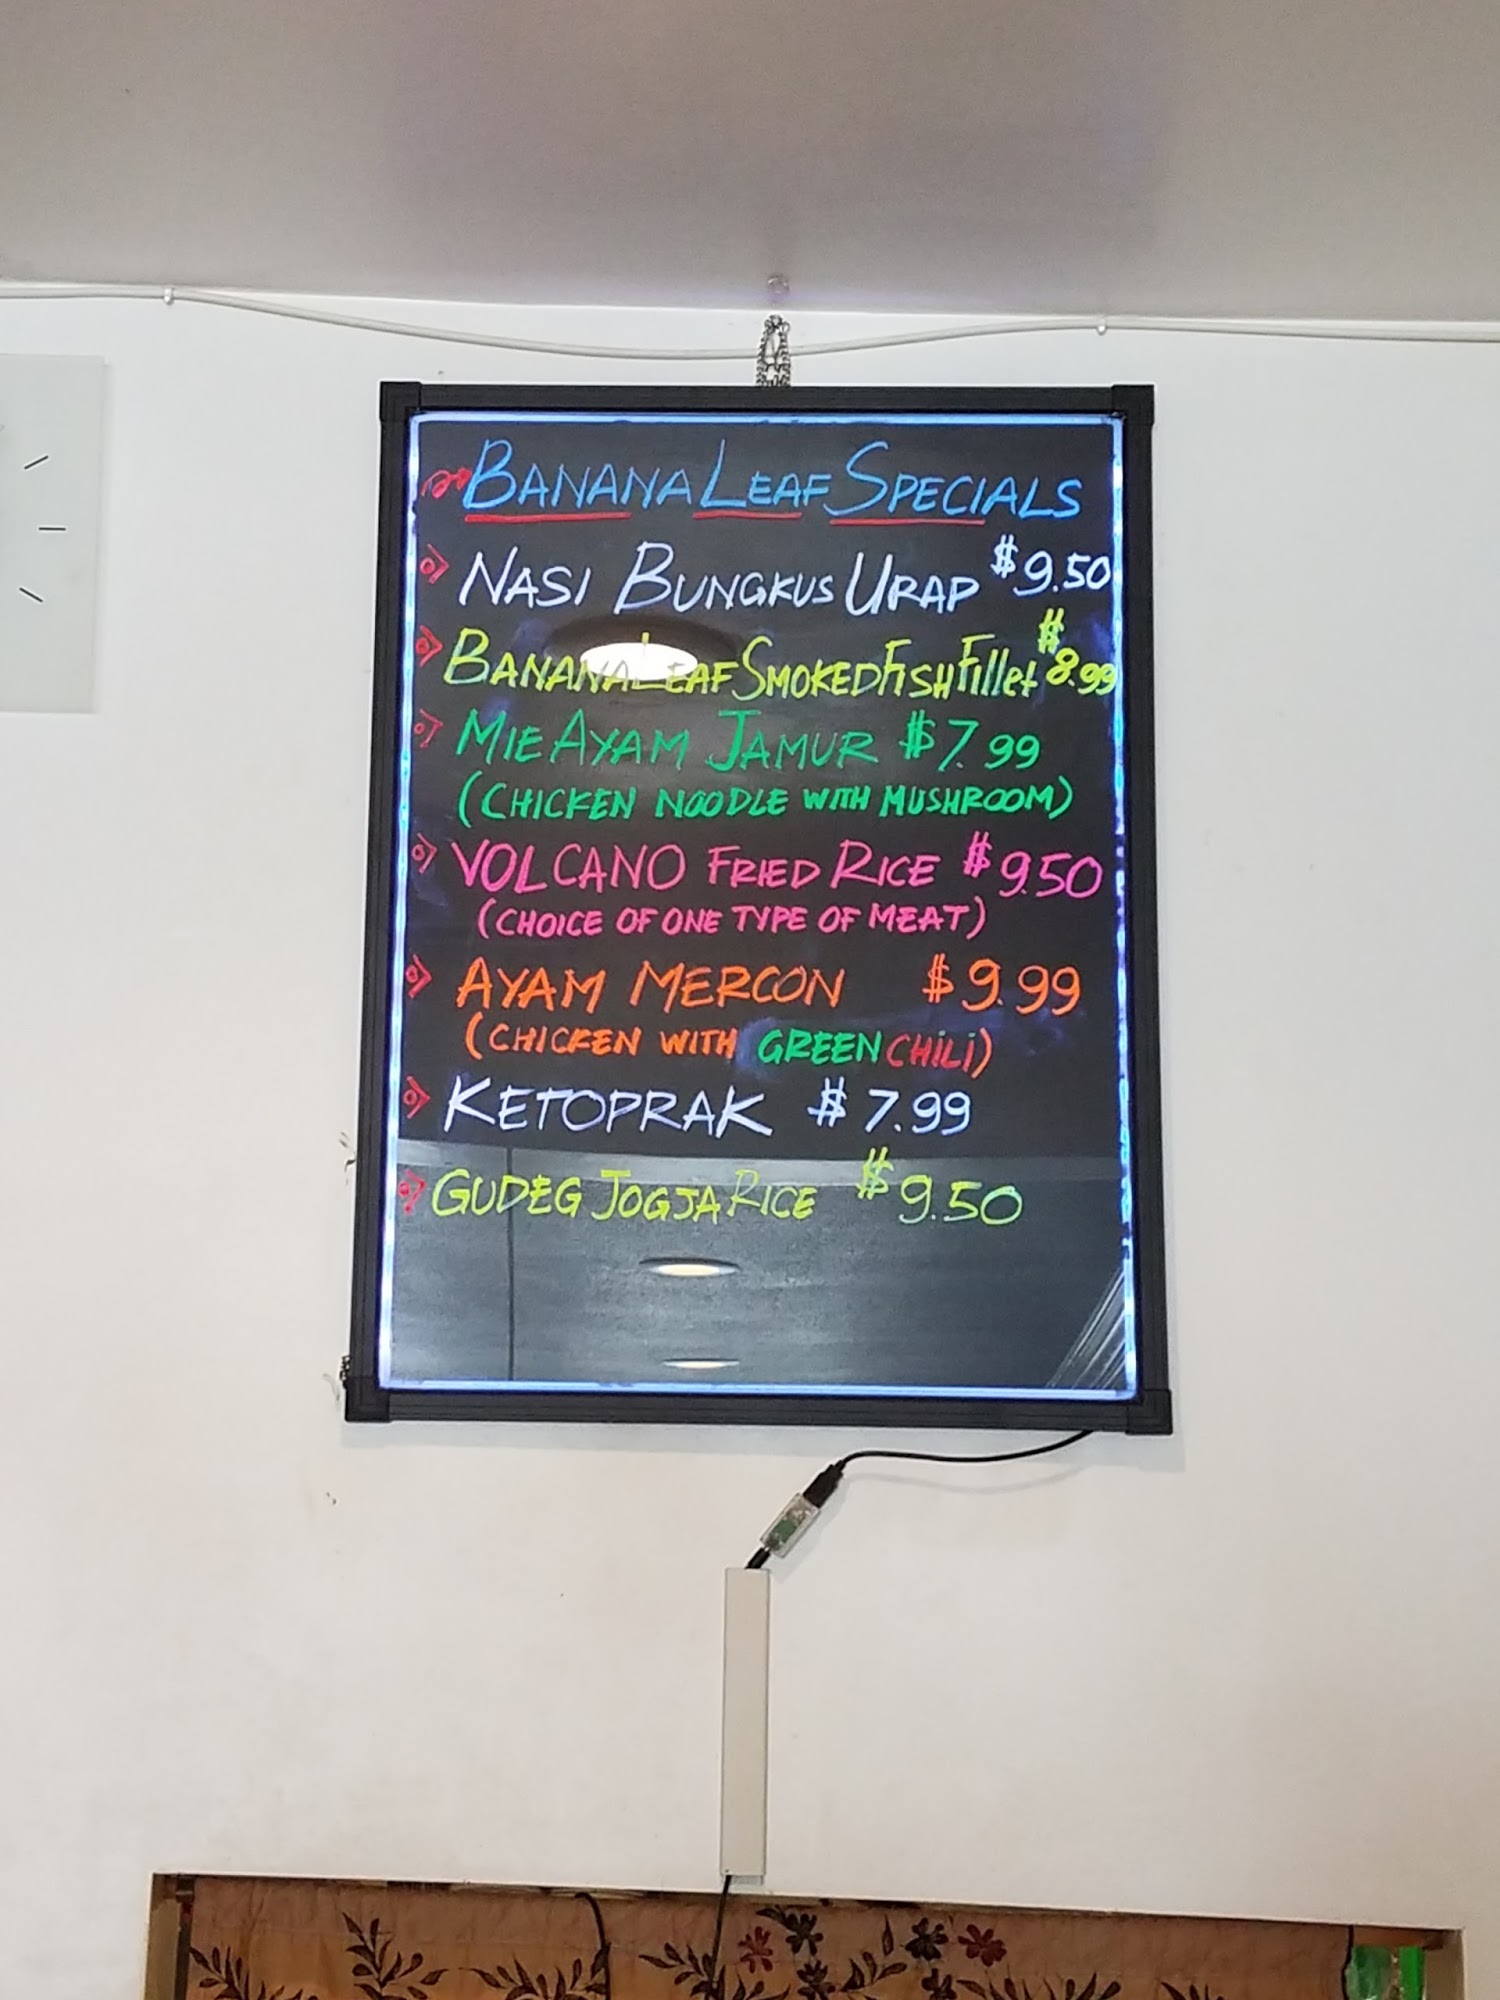 BANANA LEAF SPECIALS
NASI BUNGKUS URAP $9.50
BANANA LEAF SMOKED FISH Fillet $8.99
MIE AYAM JAMUR $7.99
(CHICKEN NOODLE WITH MUSHROOM)
VOLCANO FRIED RICE $9.50
(CHOICE OF ONE TYPE OF MEAT)
AYAM MERCON $9.99
(CHICKEN WITH GREEN CHiLi)
KETOPRAK $7.99
GUDEG JOGJA RICE $9.50